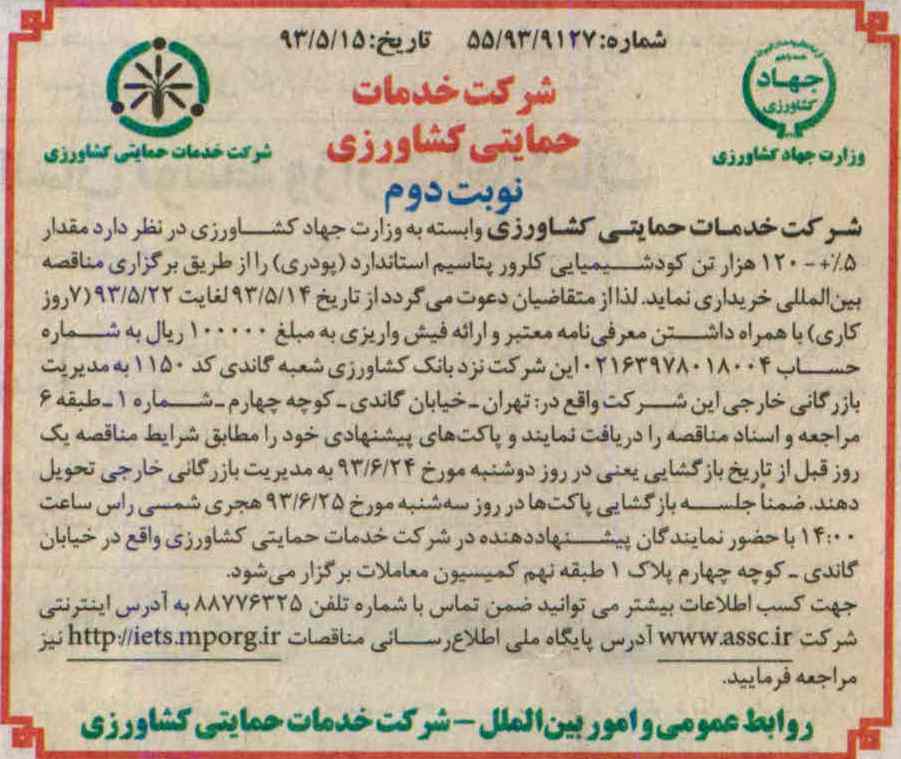 شماره: ۵۵/۹۳/۹۱۲۷ تاریخ: ۹۳/۵/۱۵
جهاد
کشاورزی
وزارت جهاد کشاورزی
شرکت خدمات
حمایتی کشاورزی
شرکت خدمات حمایتی کشاورزی
نوبت دوم
شرکت خدمات حمایتی کشاورزی وابسته به وزارت جهاد کشاورزی در نظر دارد مقدار
۵٪+- ۱۲۰ هزار تن کودشیمیایی کلرور پتاسیم استاندارد (پودری) را از طریق برگزاری مناقصه
بین‌المللی خریداری نماید. لذا از متقاضیان دعوت می‌گردد از تاریخ ۹۳/۵/۱۴ لغایت ۹۳/۵/۲۲ (۷روز
کاری) با همراه داشتن معرفی‌نامه معتبر و ارائه فیش واریزی به مبلغ ۱۰۰۰۰۰ ریال به شماره
حساب ۰۲۱۶۳۹۷۸۰۱۸۰۰۴ این شرکت نزد بانک کشاورزی شعبه گاندی کد ۱۱۵۰ به مدیریت
بازرگانی خارجی این شرکت واقع در: تهران ـ خیابان گاندی ـ کوچه چهارم ـ شماره ۱ ـ طبقه ۶
مراجعه و اسناد مناقصه را دریافت نمایند و پاکت‌های پیشنهادی خود را مطابق شرایط مناقصه یک
روز قبل از تاریخ بازگشایی یعنی در روز دوشنبه مورخ ۹۳/۶/۲۴ به مدیریت بازرگانی خارجی تحویل
دهند. ضمناً جلسه بازگشایی پاکت‌ها در روز سه‌شنبه مورخ ۹۳/۶/۲۵ هجری شمسی راس ساعت
۱۴:۰۰ با حضور نمایندگان پیشنهاددهنده در شرکت خدمات حمایتی کشاورزی واقع در خیابان
گاندی ـ کوچه چهارم پلاک ۱ طبقه نهم کمیسیون معاملات برگزار می‌شود.
جهت کسب اطلاعات بیشتر می توانید ضمن تماس با شماره تلفن ۸۸۷۷۶۳۲۵ به آدرس اینترنتی
شرکت www.assc.ir آدرس پایگاه ملی اطلاع‌رسانی مناقصات http://iets.mporg.ir نیز
مراجعه فرمایید.
روابط عمومی و امور بین‌الملل – شرکت خدمات حمایتی کشاورزی